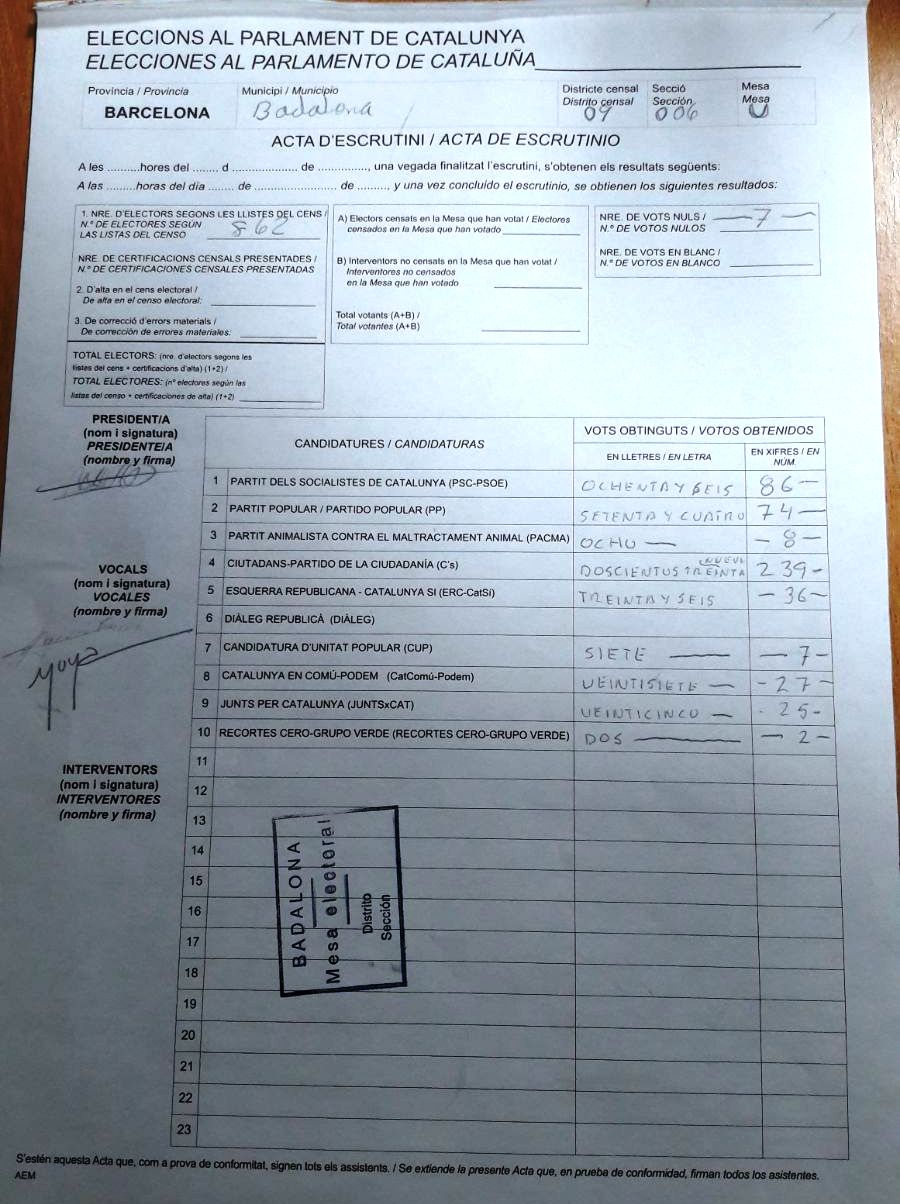 ELECCIONS AL PARLAMENT DE CATALUNYA
ELECCIONES AL PARLAMENTO DE CATALUÑA
Província / Provincia
BARCELONA
Municipi / Municipio
Badalona
Districte censal
Distrito censal
09
Secció
Sección
006
Mesa
Mesa
U
ACTA D'ESCRUTINI / ACTA DE ESCRUTINIO
A les ..........hores del ....... d .................... de ................, una vegada finalitzat l'escrutini, s'obtenen els resultats següents:
A las .........horas del día ....... de ......................... de .........., y una vez concluido el escrutinio, se obtienen los siguientes resultados:
1. NRE. D'ELECTORS SEGONS LES LLISTES DEL CENS /
N.º DE ELECTORES SEGÚN
LAS LISTAS DEL CENSO 862
NRE. DE CERTIFICACIONS CENSALS PRESENTADES /
N.º DE CERTIFICACIONES CENSALES PRESENTADAS
2. D'alta en el cens electoral /
De alta en el censo electoral:
3. De correcció d'errors materials /
De corrección de errores materiales:
TOTAL ELECTORS: (nre. d'electors segons les
llistes del cens + certificacions d'alta) (1+2) /
TOTAL ELECTORES: (nº electores según las
listas del censo + certificaciones de alta) (1+2)
A) Electors censats en la Mesa que han votat / Electores
censados en la Mesa que han votado
B) Interventors no censats en la Mesa que han votat /
Interventores no censados
en la Mesa que han votado
Total votants (A+B) /
Total votantes (A+B)
NRE. DE VOTS NULS / — 7 —
N.º DE VOTOS NULOS
NRE. DE VOTS EN BLANC /
N.º DE VOTOS EN BLANCO
PRESIDENT/A
(nom i signatura)
PRESIDENTE/A
(nombre y firma)
VOCALS
(nom i signatura)
VOCALES
(nombre y firma)
Moya
INTERVENTORS
(nom i signatura)
INTERVENTORES
(nombre y firma)
CANDIDATURES / CANDIDATURAS
VOTS OBTINGUTS / VOTOS OBTENIDOS
EN LLETRES / EN LETRA
EN XIFRES / EN
NÚM.
1 PARTIT DELS SOCIALISTES DE CATALUNYA (PSC-PSOE) OCHENTA Y SEIS 86 —
2 PARTIT POPULAR / PARTIDO POPULAR (PP) SETENTA Y CUATRO 74 —
3 PARTIT ANIMALISTA CONTRA EL MALTRACTAMENT ANIMAL (PACMA) OCHO — — 8 —
4 CIUTADANS-PARTIDO DE LA CIUDADANÍA (C's) DOSCIENTOS TREINTA NUEVE 239 -
5 ESQUERRA REPUBLICANA - CATALUNYA SI (ERC-CatSí) TREINTA Y SEIS — 36 —
6 DIÀLEG REPUBLICÀ (DIÀLEG)
7 CANDIDATURA D'UNITAT POPULAR (CUP) SIETE — — 7 -
8 CATALUNYA EN COMÚ-PODEM (CatComú-Podem) VEINTISIETE — - 27 -
9 JUNTS PER CATALUNYA (JUNTSxCAT) VEINTICINCO — - 25 -
10 RECORTES CERO-GRUPO VERDE (RECORTES CERO-GRUPO VERDE) DOS — — 2 —
11
12
13
14
15
16
17
18
19
20
21
22
23
BADALONA
Mesa electoral
Distrito
Sección
S'estén aquesta Acta que, com a prova de conformitat, signen tots els assistents. / Se extiende la presente Acta que, en prueba de conformidad, firman todos los asistentes.
AEM